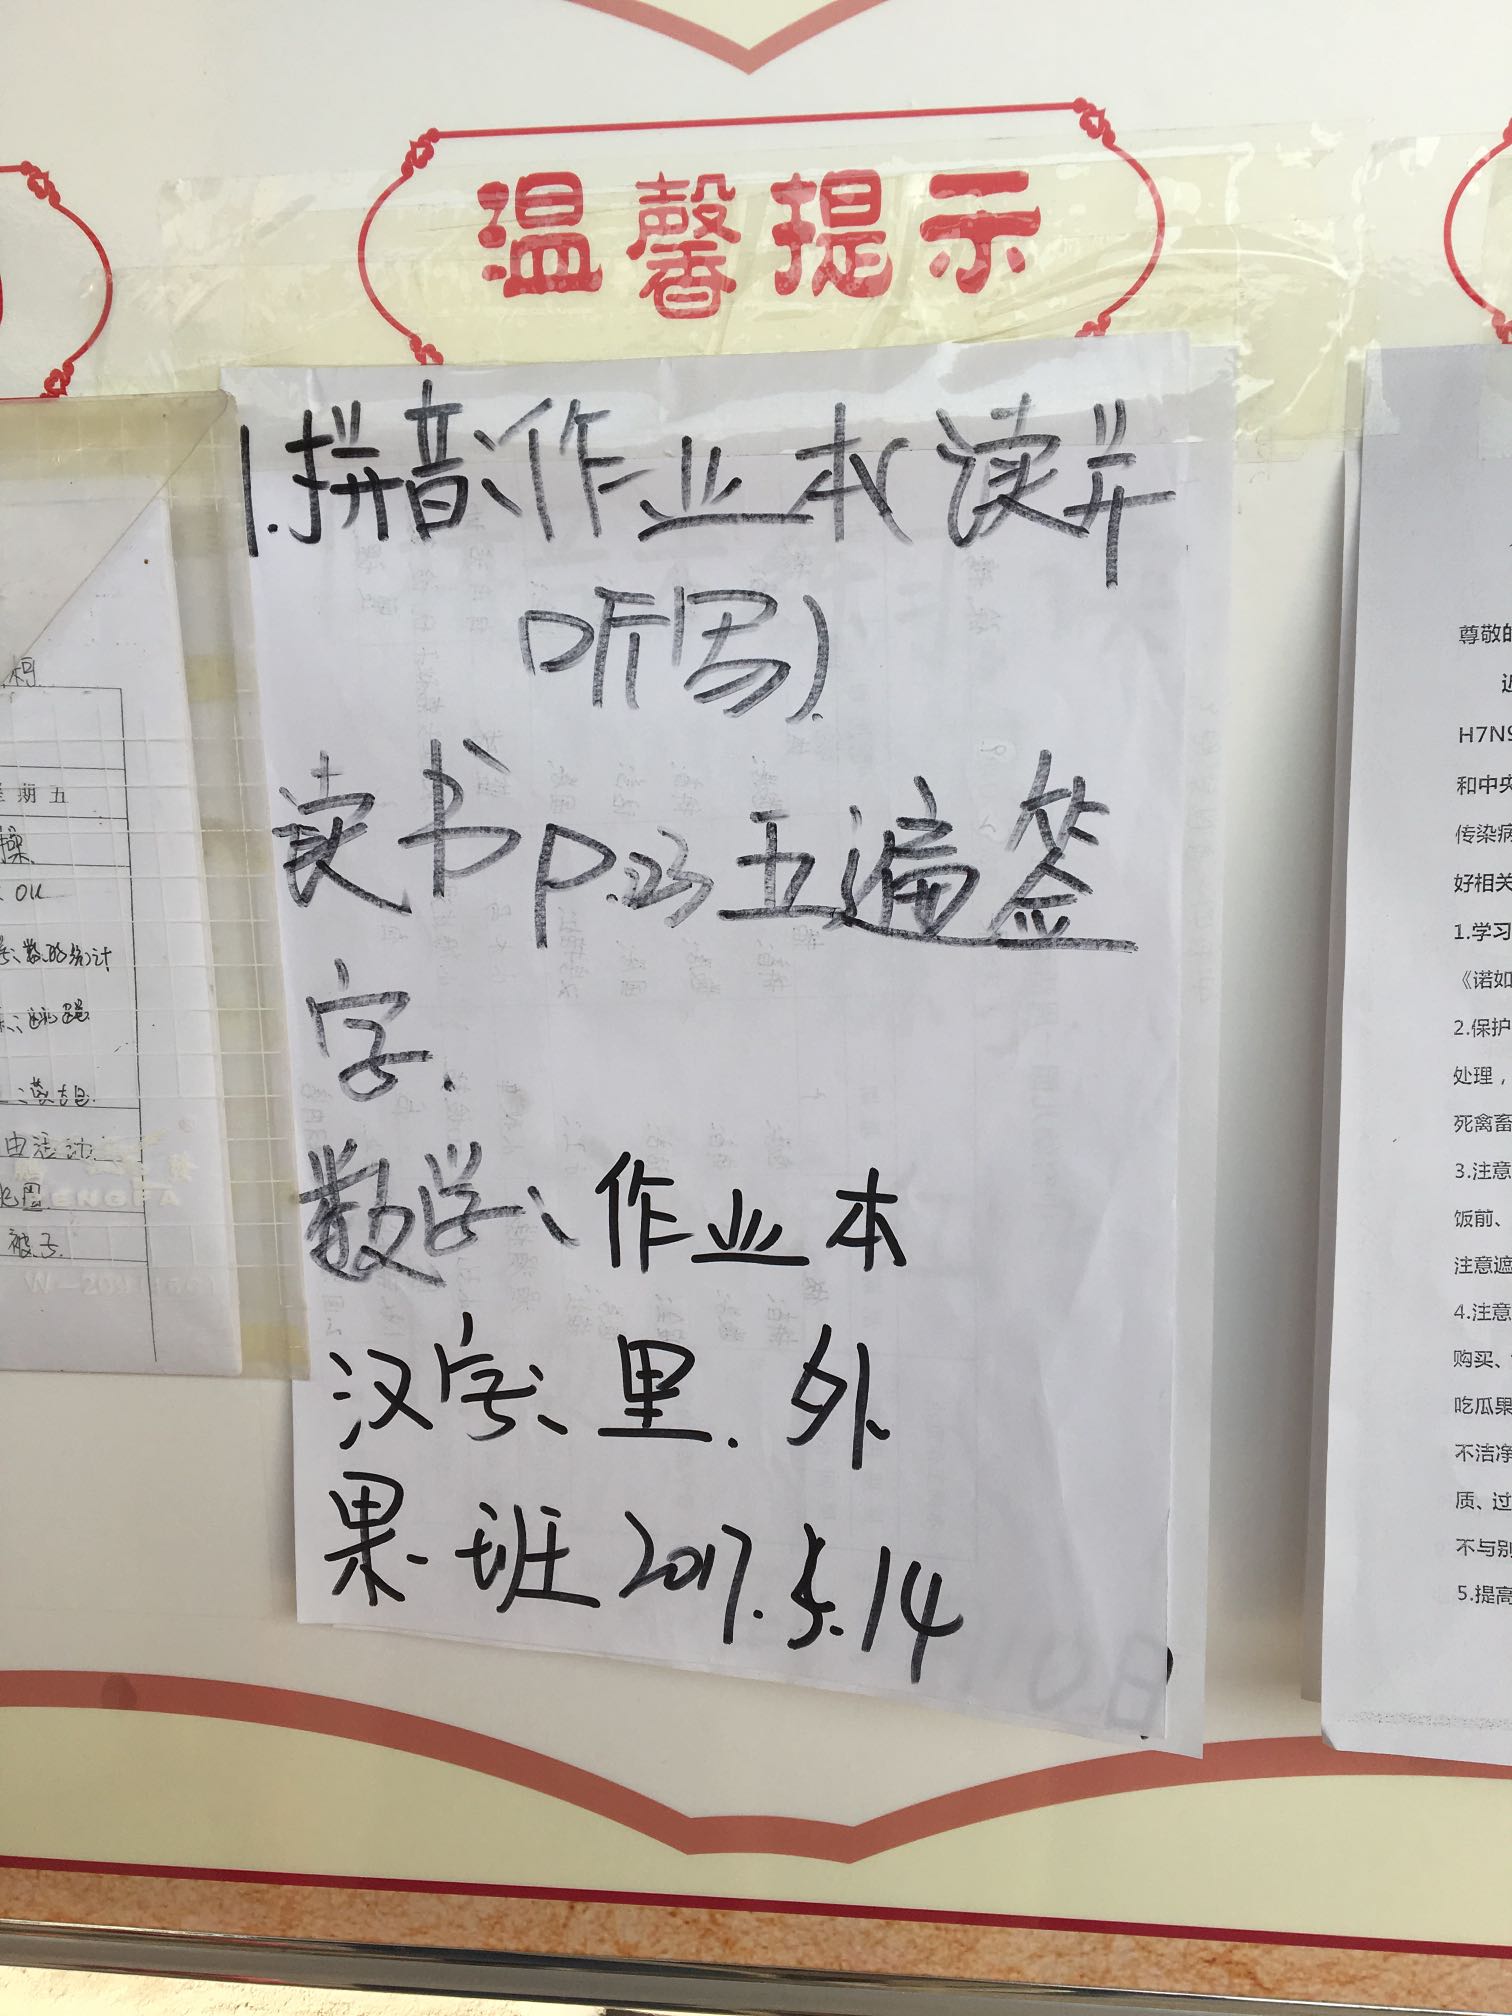 温馨提示
1.拼音、作业本(读并
听写).
读书P.23五遍签
字.
数学、作业本
汉字、里.外
果一班2017.5.14
期五
操
OK
数的统计
由活动
被子
尊敬的
H7N9
和中央
传染病
好相关
1.学习
《诺如
2.保护
处理，
死禽畜
3.注意
饭前、
注意遮
4.注意
购买、
吃瓜果
不洁净
质、过
不与别
5.提高